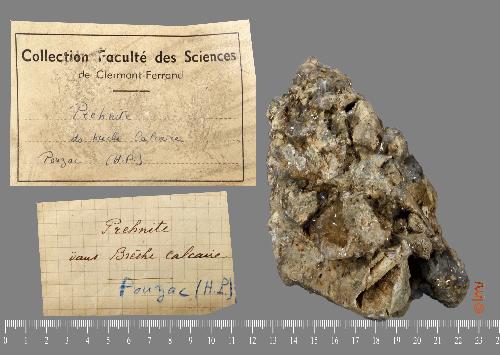 Collection Faculté des Sciences
de Clermont-Ferrand
Prehnite
ds brèche Calcaire
Pouzac (H.P.)
Prehnite
dans Brèche calcaire
Pouzac (H.P.)
0 1 2 3 4 5 6 7 8 9 10 11 12 13 14 15 16 17 18 19 20 21 22 23